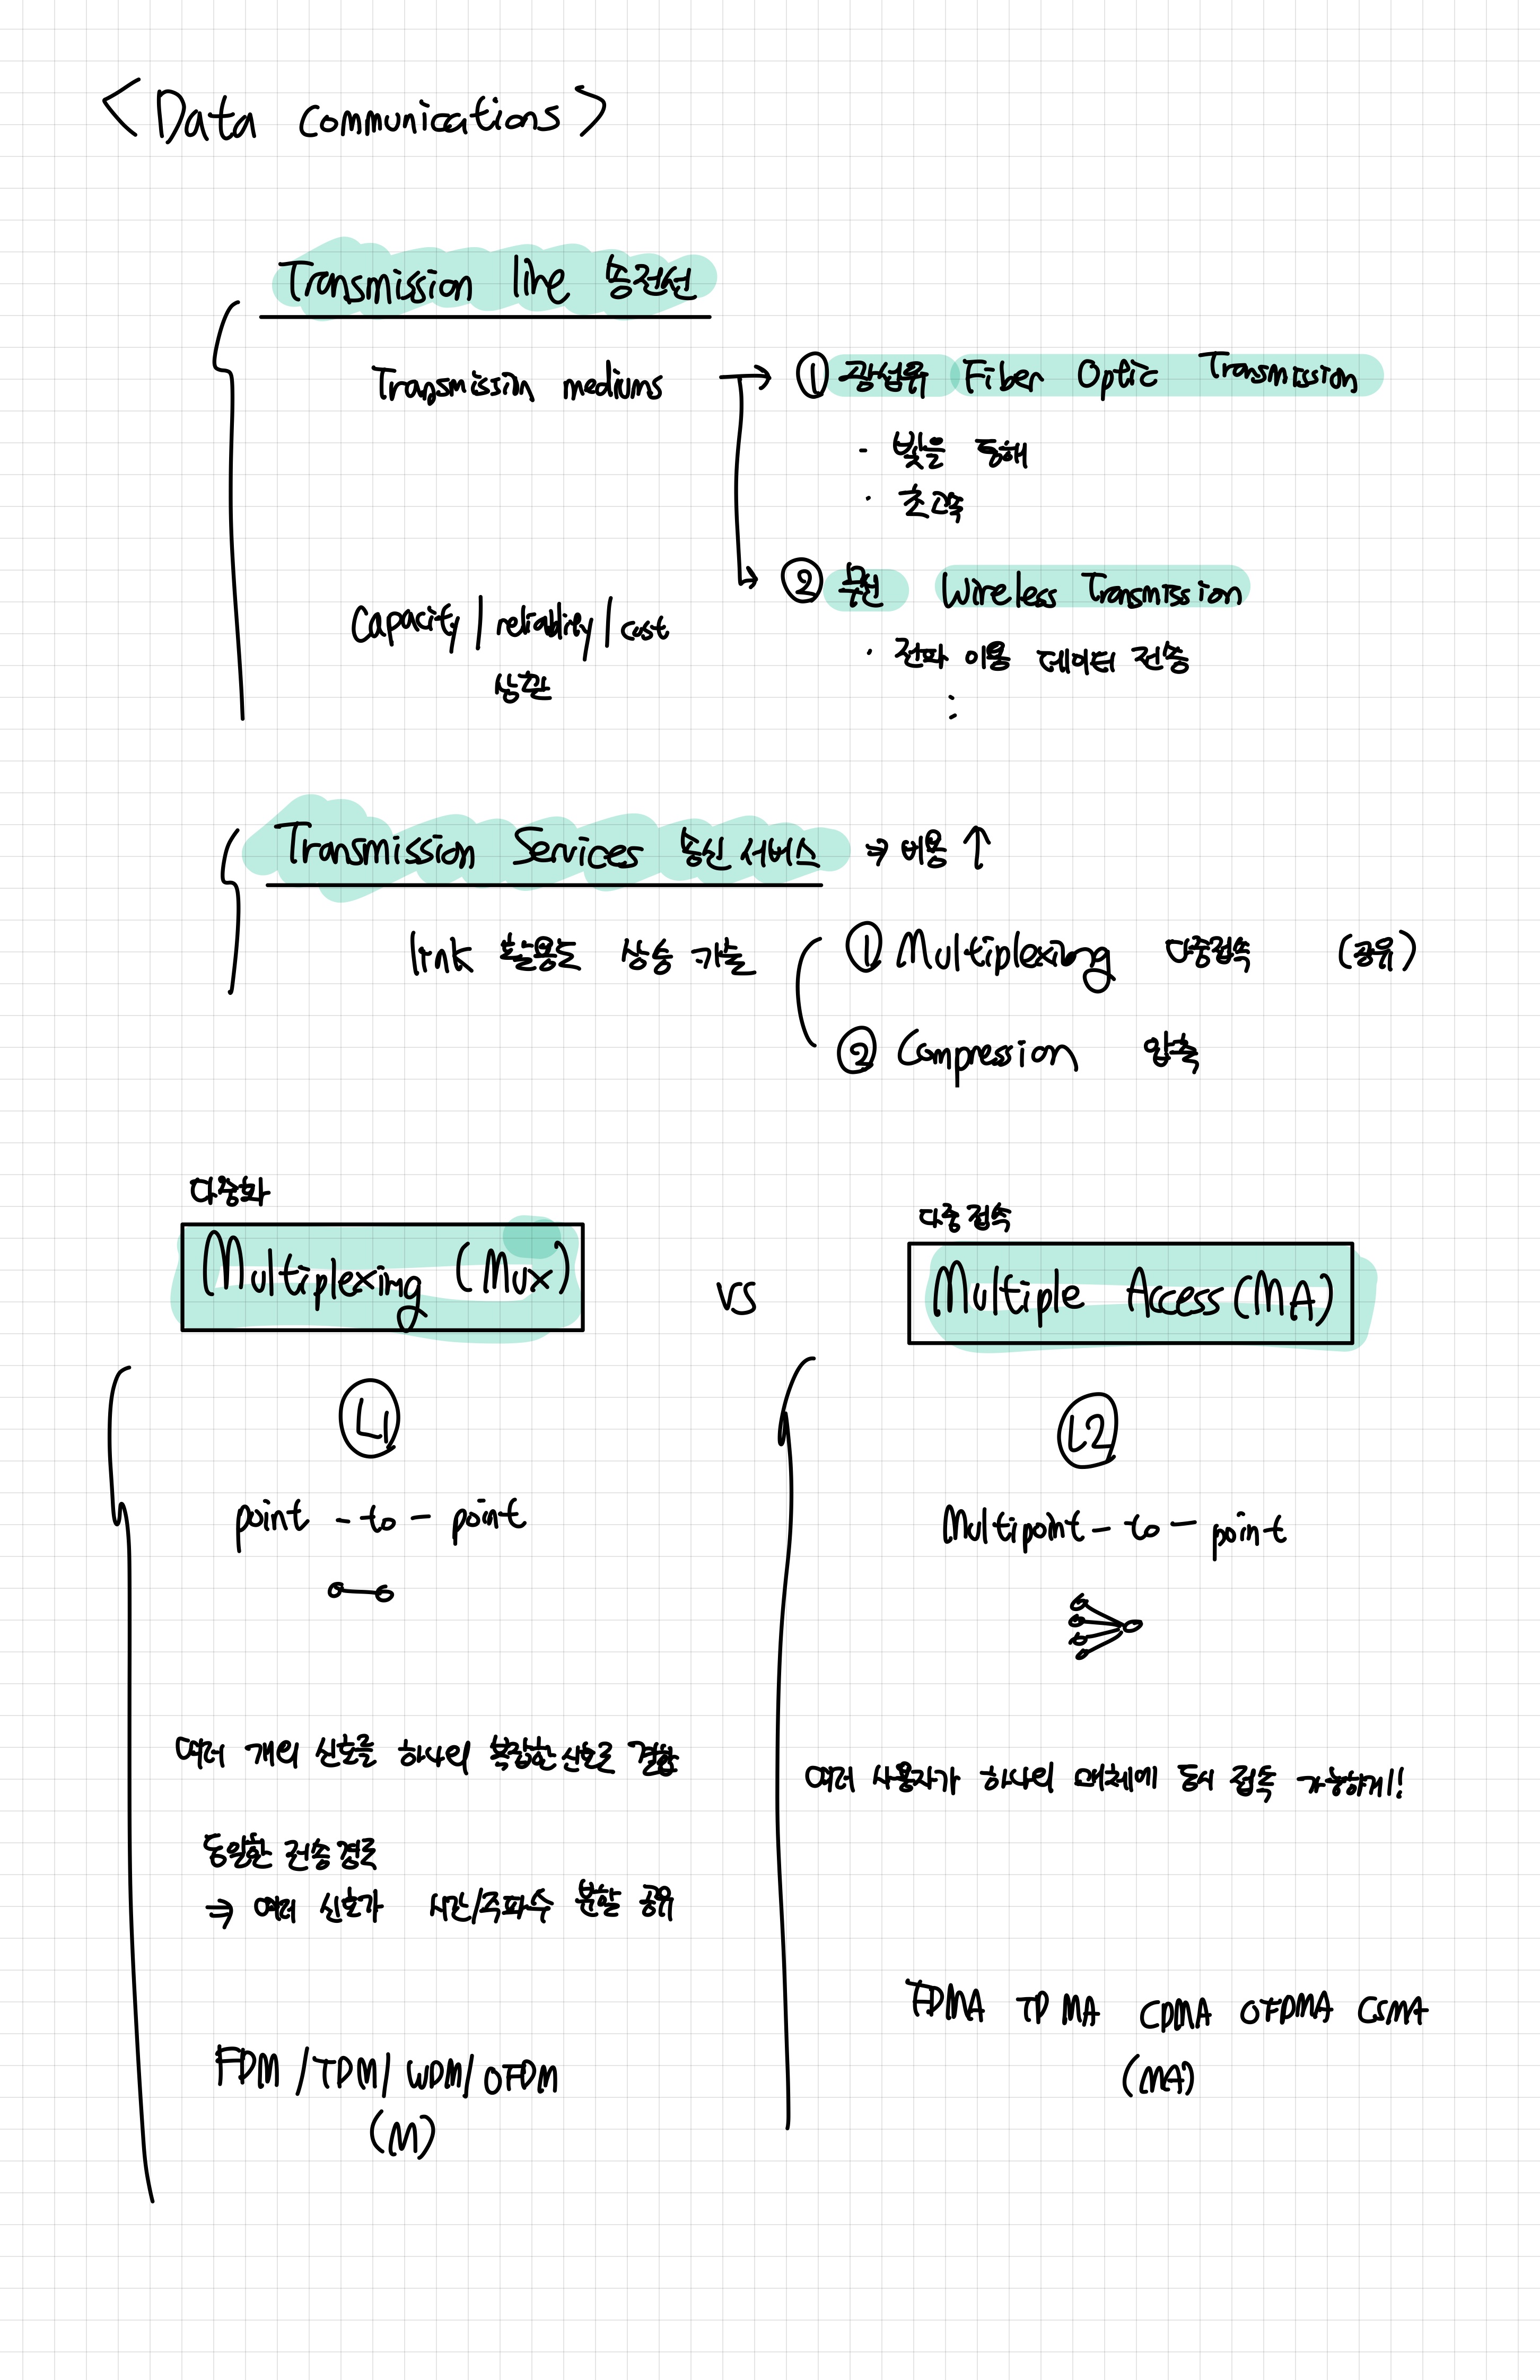 <Data communications>
Transmission line 송전선
Transmission mediums → ① 광섬유 Fiber Optic Transmission
· 빛을 통해
· 초고속
② 무선 Wireless Transmission
Capacity / reliability / cost
상관
· 전파 이용 데이터 전송
:
Transmission Services 송신 서비스 ⇒ 비용 ↑
link 활용도 상승 기술
① Multiplexing 다중접속 (공유)
② Compression 압축
다중화
Multiplexing (Mux)
vs
다중 접속
Multiple Access (MA)
L1
point - to - point
여러 개의 신호를 하나의 복잡한 신호로 결합
동일한 전송 경로
⇒ 여러 신호가 시간/주파수 분할 공유
FDM / TDM / WDM / OFDM
(M)
L2
Multipoint - to - point
여러 사용자가 하나의 매체에 동시 접속 가능하게!
FDMA TDMA CDMA OFDMA CSMA
(MA)